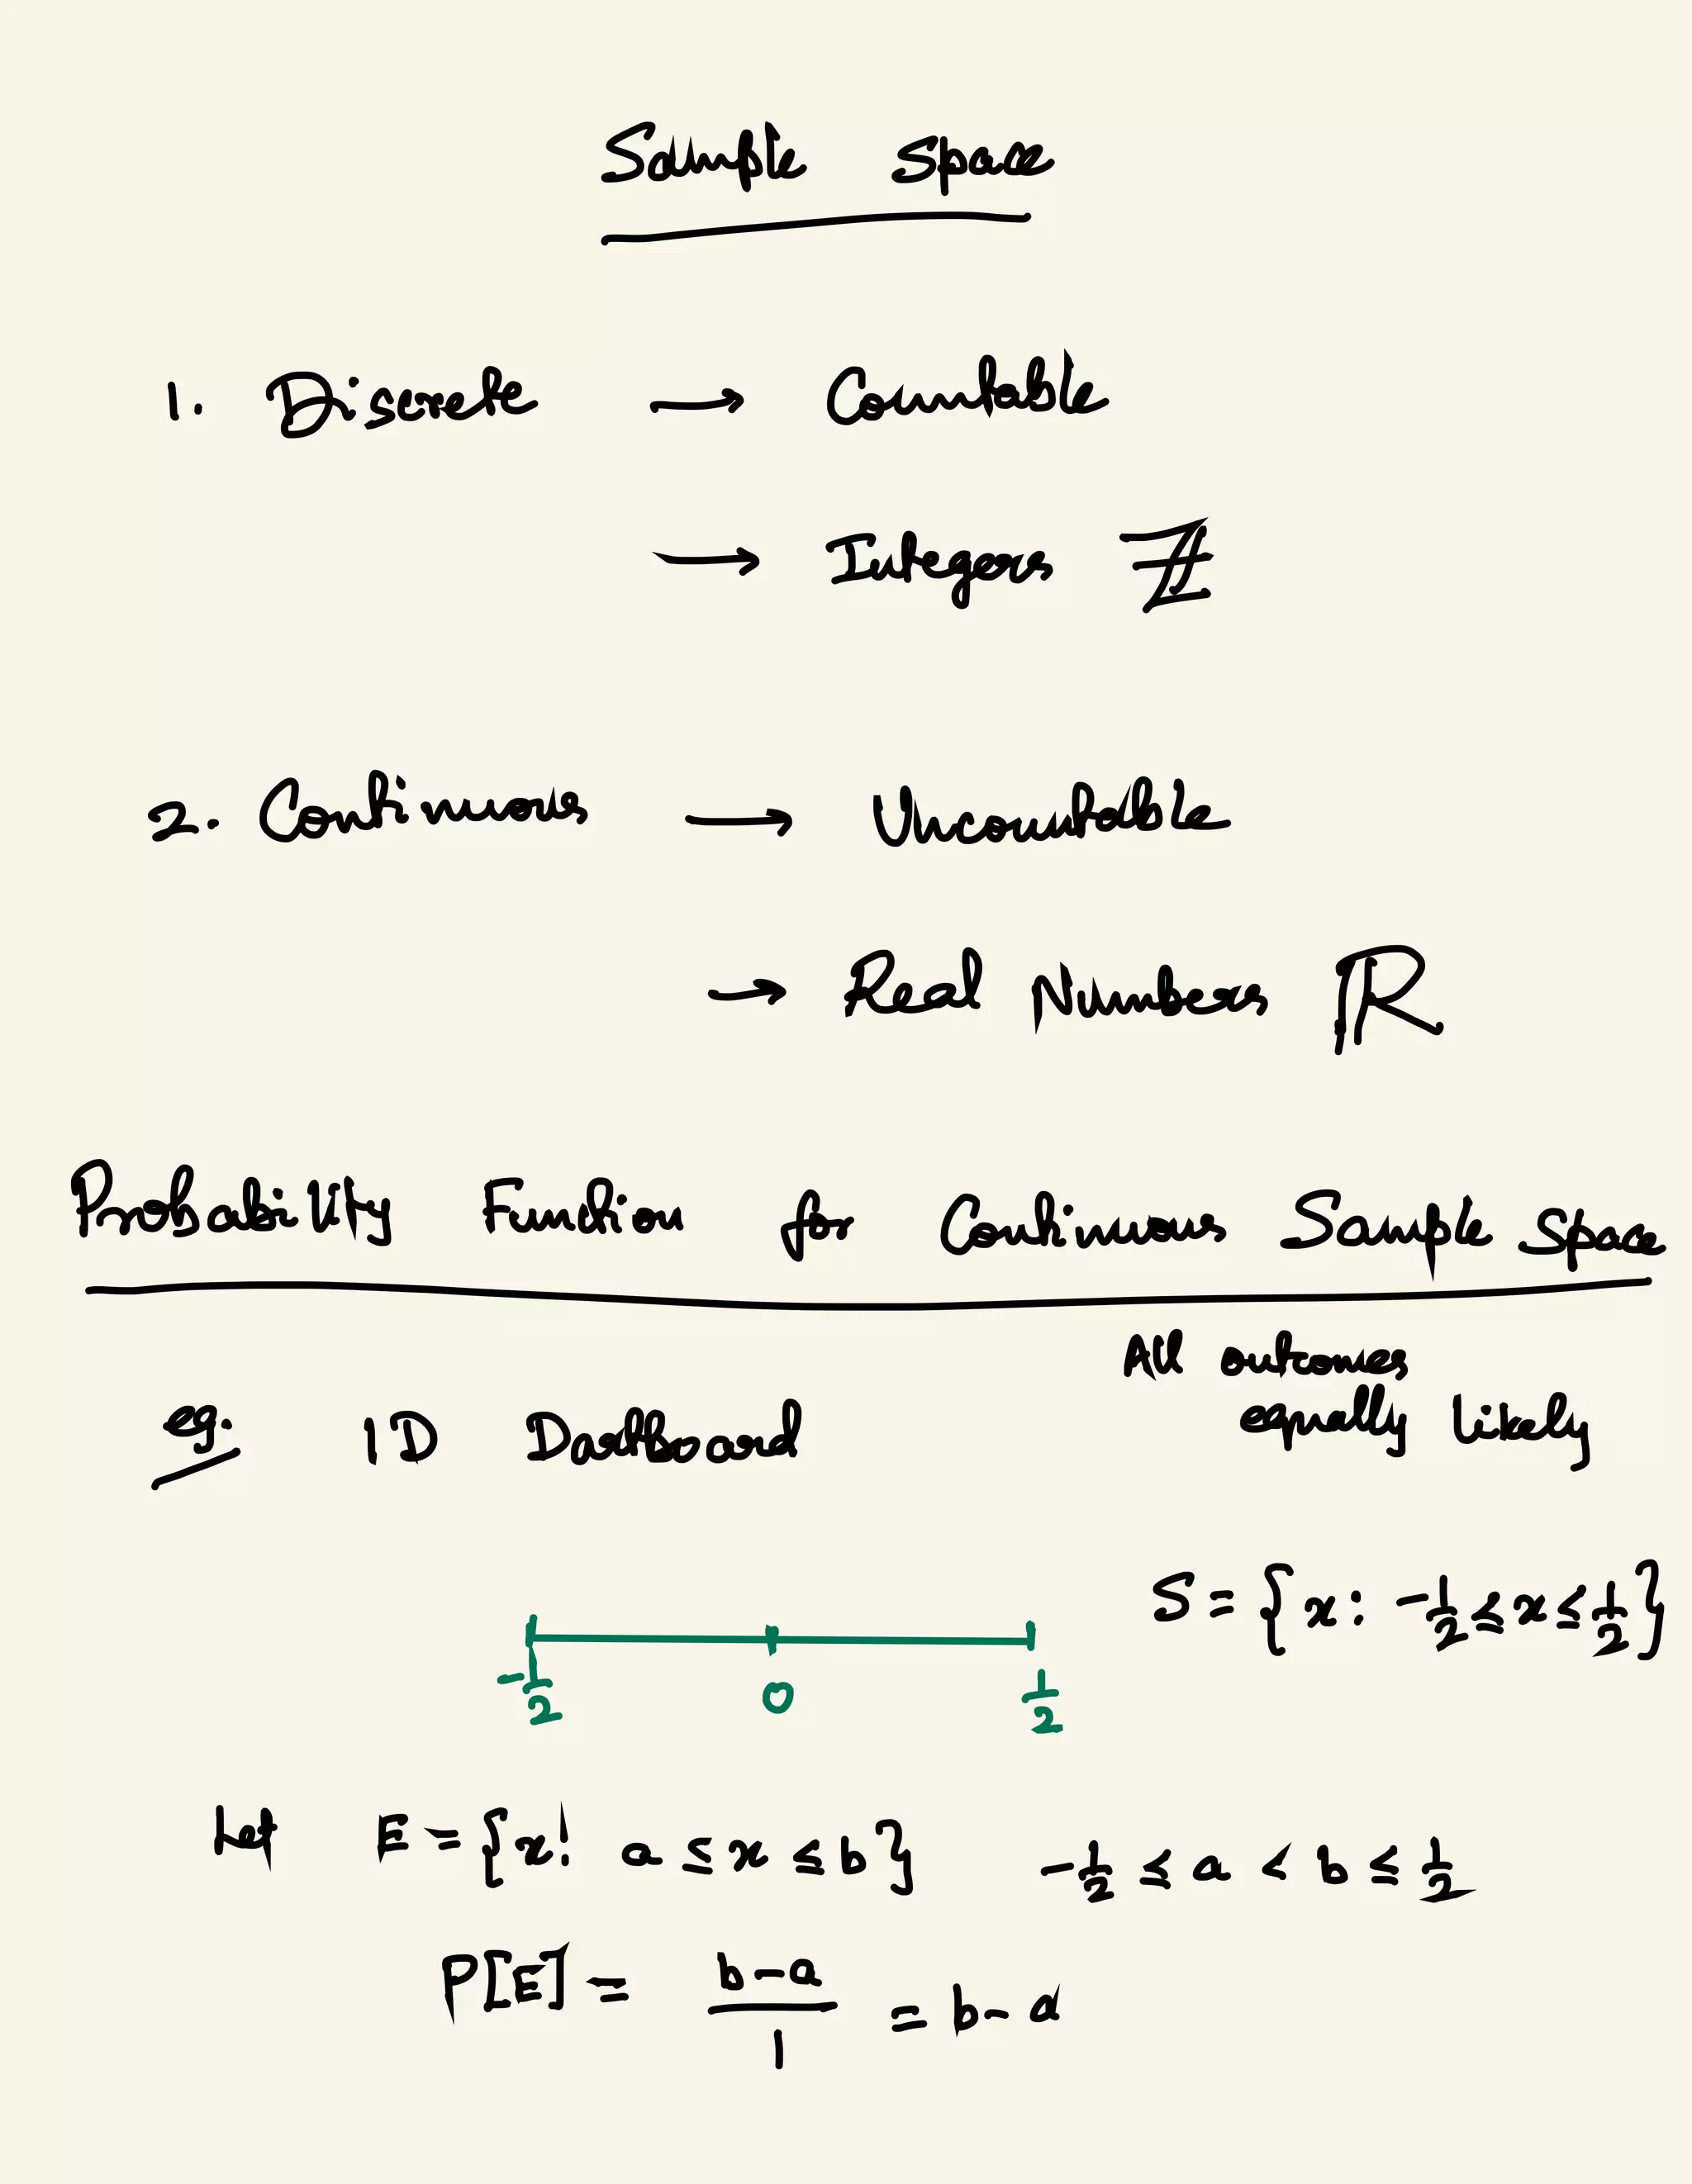 Sample Space
1. Discrete → Countable
→ Integers ℤ
2. Continuous → Uncountable
→ Real Numbers ℝ
Probability Function for Continuous Sample Space
All outcomes
equally likely
eg. 1D Dartboard
S = {x : -1/2 ≤ x ≤ 1/2}
-1/2 0 1/2
Let E = {x: a ≤ x ≤ b} -1/2 ≤ a < b ≤ 1/2
P[E] = (b-a)/1 = b-a